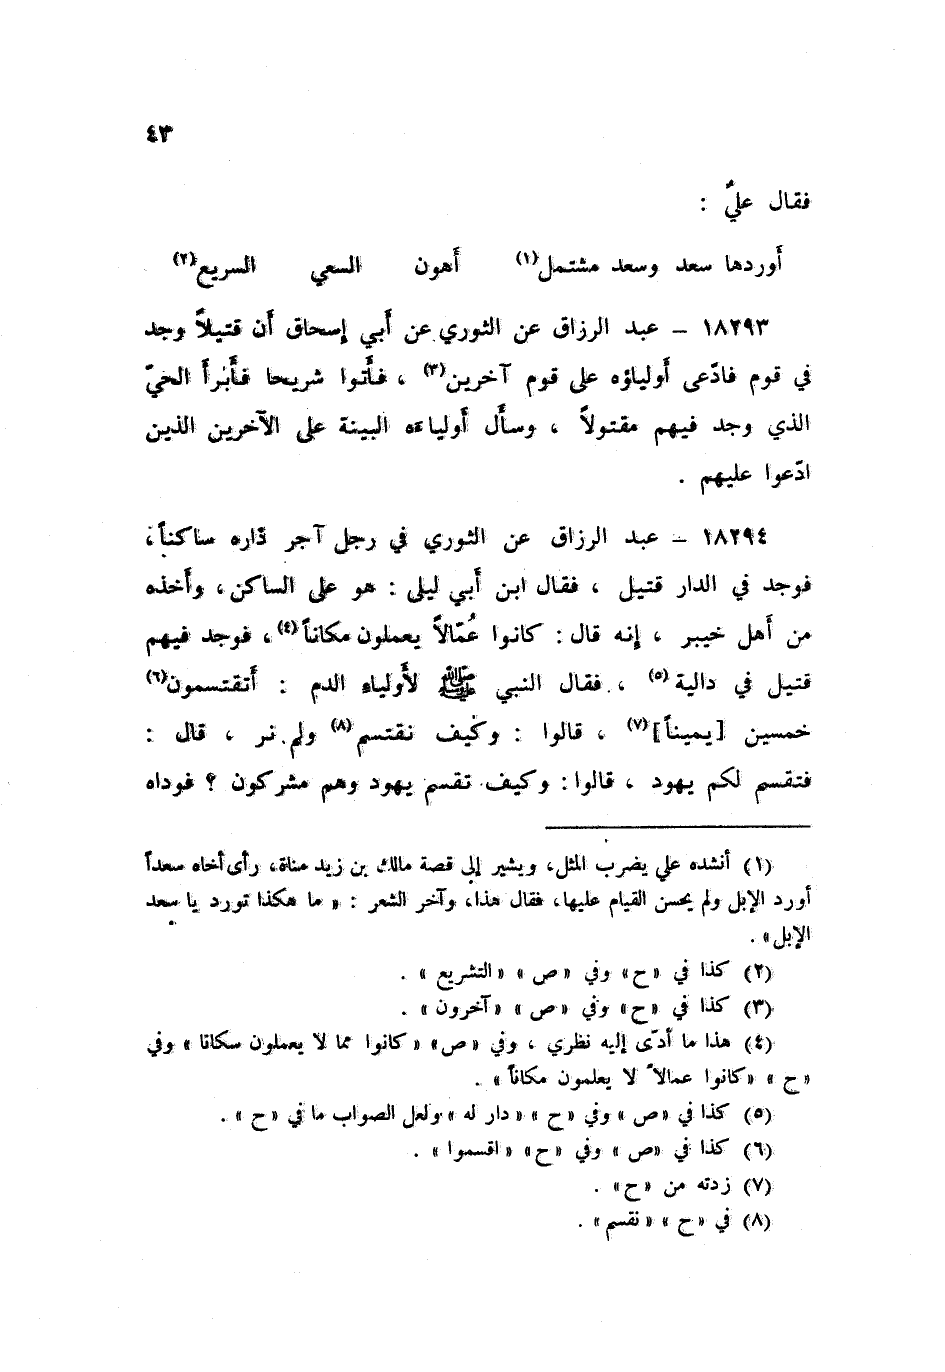 ٤٣
فقال عليٌّ :
أوردها سعد وسعد مشتمل(١) أهون السعي السريع(٢)
١٨٢٩٣ – عبد الرزاق عن الثوري عن أبي إسحاق أن قتيلاً وجد
في قوم فادّعى أولياؤه على قوم آخرين(٣) ، فأتوا شريحا فأبرأ الحيّ
الذي وجد فيهم مقتولاً ، وسأل أولياءه البينة على الآخرين الذين
ادّعوا عليهم .
١٨٢٩٤ – عبد الرزاق عن الثوري في رجل آجر داره ساكناً ،
فوجد في الدار قتيل ، فقال ابن أبي ليلى : هو على الساكن ، وأخذه
من أهل خيبر ، إنه قال : كانوا عُمّالاً يعملون مكاناً(٤) ، فوجد فيهم
قتيل في دالية(٥) ، فقال النبي ﷺ لأولياء الدم : أتقتسمون(٦)
خمسين [يميناً](٧) ، قالوا : وكيف نقتسم(٨) ولم نر ، قال :
فتقسم لكم يهود ، قالوا : وكيف تقسم يهود وهم مشركون ؟ فوداه
(١) أنشده علي يضرب المثل، ويشير إلى قصة مالك بن زيد مناة، رأى أخاه سعداً
أورد الإبل ولم يحسن القيام عليها، فقال هذا، وآخر الشعر : « ما هكذا تورد يا سعد
الإبل» .
(٢) كذا في «ح» وفي «ص» «التشريع» .
(٣) كذا في «ح» وفي «ص» «آخرون» .
(٤) هذا ما أدّى إليه نظري ، وفي «ص» «كانوا مما لا يعملون سكانا» وفي
«ح» «كانوا عمالاً لا يعلمون مكاناً» .
(٥) كذا في «ص» وفي «ح» «دار له» ولعل الصواب ما في «ح» .
(٦) كذا في «ص» وفي «ح» «اقسموا» .
(٧) زدته من «ح» .
(٨) في «ح» «نقسم» .